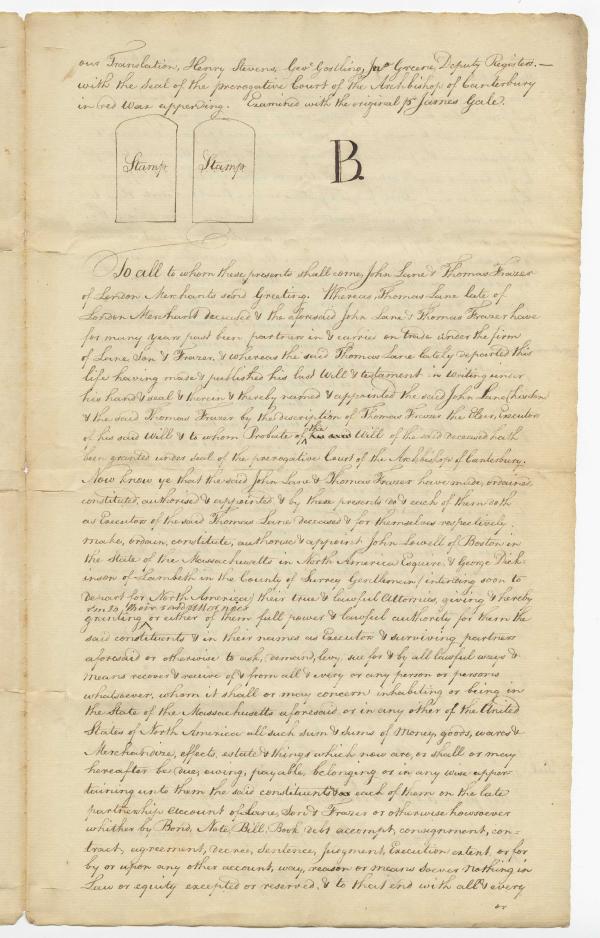 our Translation, Henry Stevens, Geo. Gostling, Jno. Greene, Deputy Registers. —
with the seal of the prerogative Court of the Archbishop of Canterbury
in red Wax appending. Examined with the original pr James Gale.
Stamp Stamp
B.
To all to whom these presents shall come, John Lane & Thomas Frazer
of London Merchants send Greeting. Whereas Thomas Lane late of
London Merchant deceased & the aforesaid John Lane & Thomas Frazer have
for many years past been partners in & carried on trade under the firm
of Lane, Son & Frazer, & whereas the said Thomas Lane lately departed this
life having made & published his last Will & testament in writing under
his hand & seal & therein & thereby named & appointed the said John Lane, his son
& the said Thomas Frazer by the description of Thomas Frazer the Elder, Executors
of his said Will & to whom Probate of the Will of the said deceased hath
been granted under seal of the prerogative Court of the Archbishop of Canterbury.
Now know ye that the said John Lane & Thomas Frazer have made, ordained,
constituted, authorised & appointed, & by these presents do & each of them doth
as Executor of the said Thomas Lane deceased & for themselves respectively
make, ordain, constitute, authorise & appoint John Lowell of Boston in
the State of the Massachusetts in North America Esquire, & George Dick-
inson of Lambeth in the County of Surrey Gentleman (intending soon to
depart for North America) their true & lawful Attornies, giving & hereby
granting unto their said attornies or either of them full power & lawful authority for them the
said constituents & in their names as Executors & surviving partners
aforesaid or otherwise to ask, demand, levy, sue for & by all lawful ways &
means recover & receive of & from all & every or any person or persons
whatsoever, whom it shall or may concern inhabiting or being in
the State of the Massachusetts aforesaid, or in any other of the United
States of North America all such sum & sums of money, goods, wares &
Merchandize, effects, estate & things which now are, or shall or may
hereafter be due, owing, payable, belonging or in any wise apper-
taining unto them the said constituents or each of them on the late
partnership account of Lane, Son & Frazer or otherwise howsoever
whether by Bond, Note, Bill, Book debt accompt, consignment, con-
tract, agreement, decree, sentence, Judgment, Execution extent, or for
by or upon any other account, way, reason or means soever nothing in
Law or equity excepted or reserved, & to that end with all & every
or